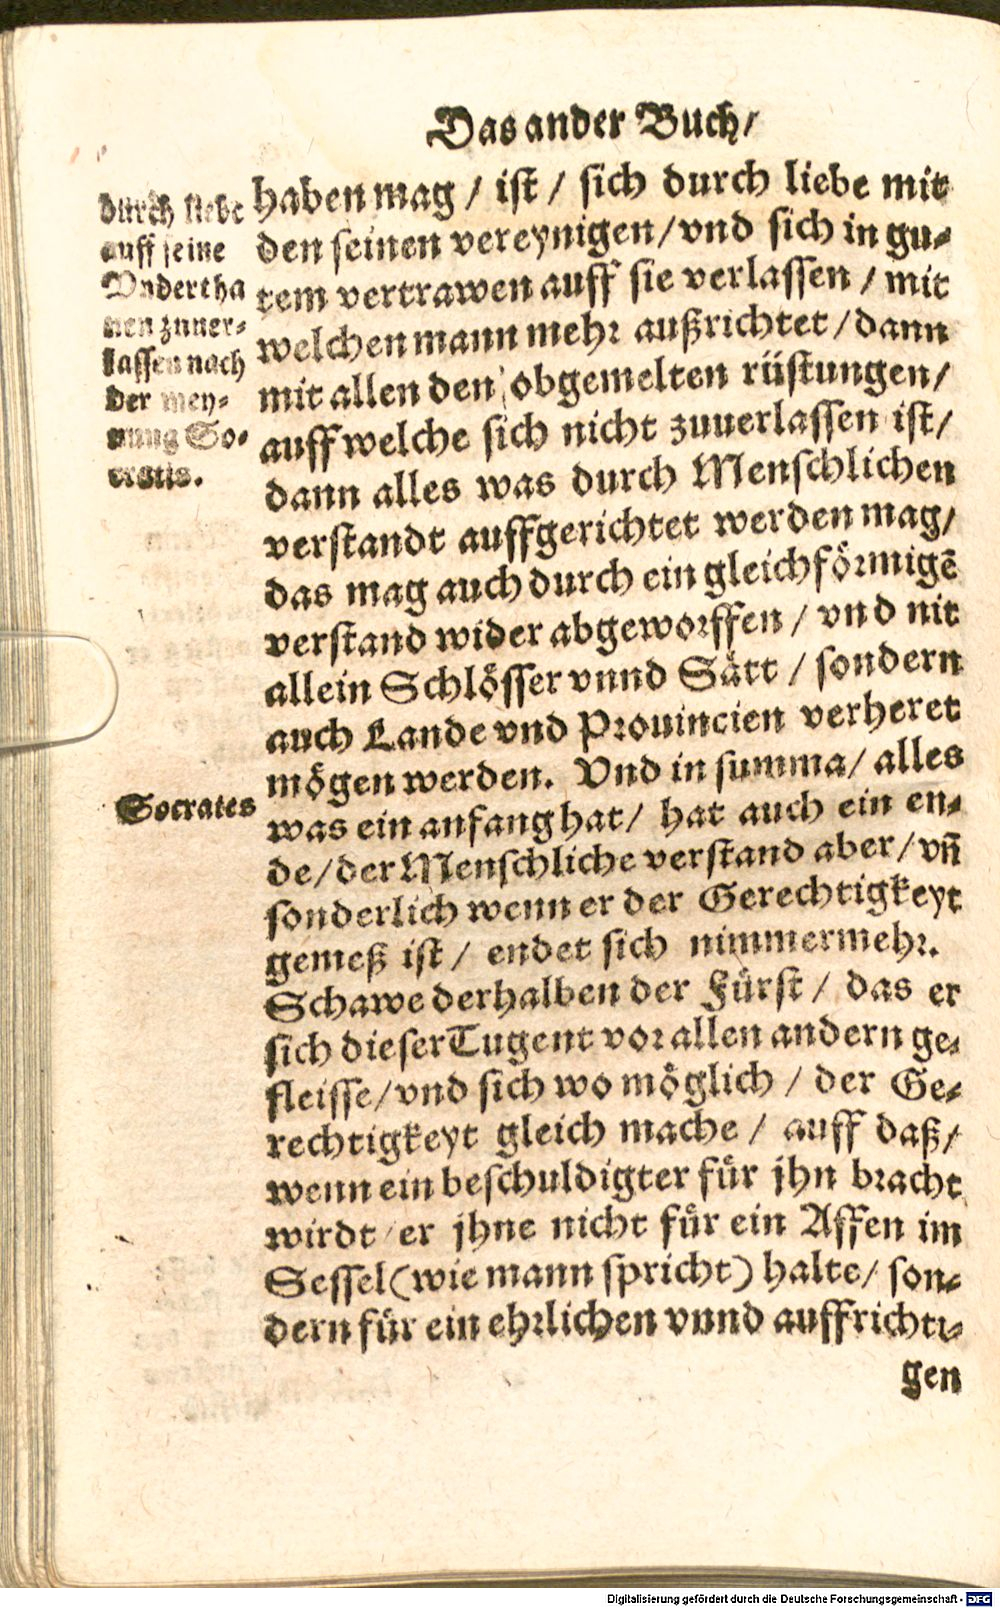 Das ander Buch/
durch liebe
auff seine
Vndertha
nen zuuer-
lassen nach
der mey-
nung So-
cratis.
haben mag / ist / sich durch liebe mit
den seinen vereynigen/vnd sich in gu-
tem vertrawen auff sie verlassen / mit
welchen mann mehr außrichtet/dann
mit allen den obgemelten rüstungen/
auff welche sich nicht zuuerlassen ist/
dann alles was durch Menschlichen
verstandt auffgerichtet werden mag/
das mag auch durch ein gleichförmigē
verstand wider abgeworffen / vnd nit
allein Schlösser vnnd Sätt / sondern
auch Lande vnd Prouincien verheret
mögen werden. Vnd in summa/ alles
Socrates
was ein anfang hat/ hat auch ein en-
de/der Menschliche verstand aber/vn̄
sonderlich wenn er der Gerechtigkeyt
gemeß ist/ endet sich nimmermehr.
Schawe derhalben der Fürst/ das er
sich dieser Tugent vor allen andern ge-
fleisse/vnd sich wo möglich / der Ge-
rechtigkeyt gleich mache / auff daß/
wenn ein beschuldigter für jhn bracht
wirdt/er jhne nicht für ein Affen im
Sessel(wie mann spricht) halte/ son-
dern für ein ehrlichen vnnd auffrichti-
gen
Digitalisierung gefördert durch die Deutsche Forschungsgemeinschaft - DFG